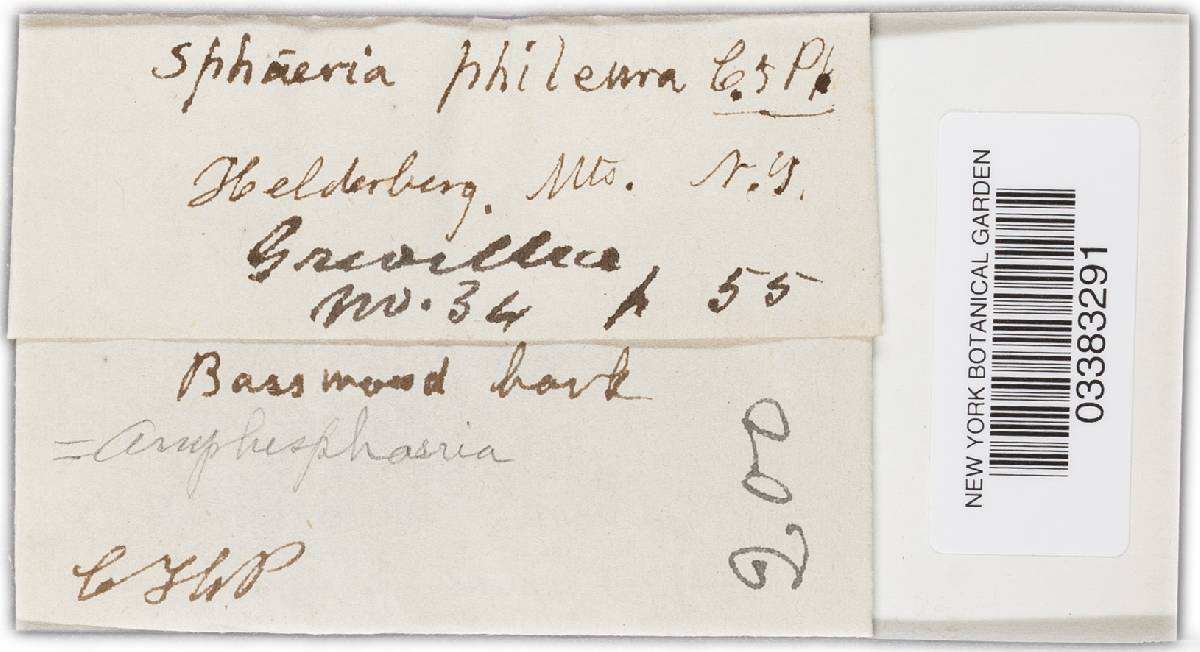 Sphaeria phileura C. & Pk
Helderberg. Mts. N.Y.
Grevillea
No. 34 p 55
Basswood bark
= Amphisphaeria
C H P
200
NEW YORK BOTANICAL GARDEN
03383291